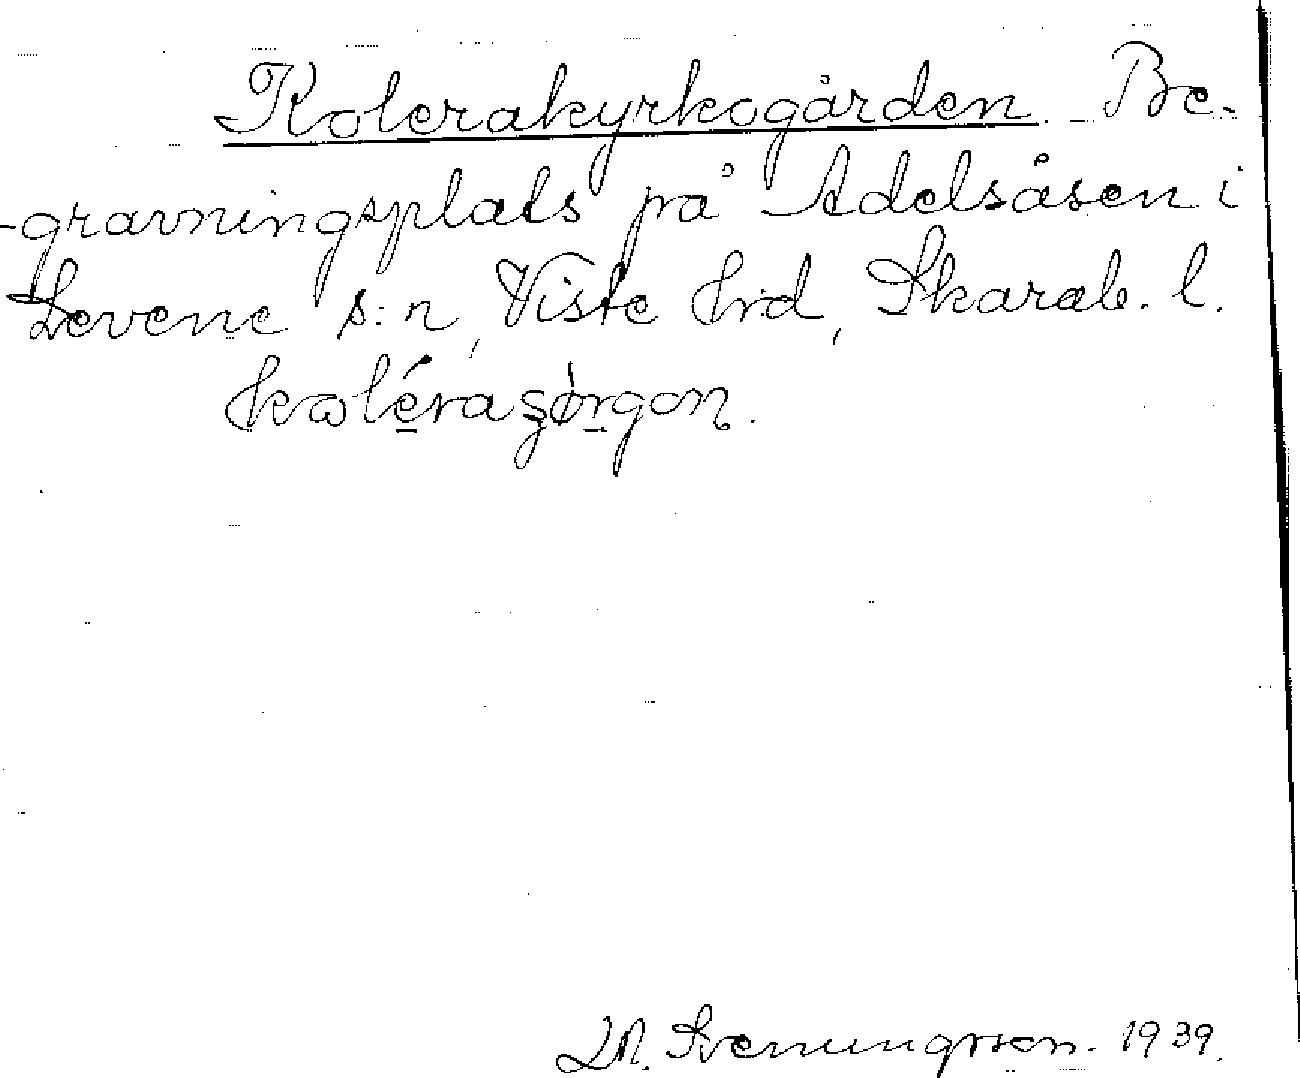 Kolerakyrkogården. Be-
-gravningsplats på Adelsåsen i
Levene s:n, Viste hrd, Skarab. l.
Sveningsson. 1939.